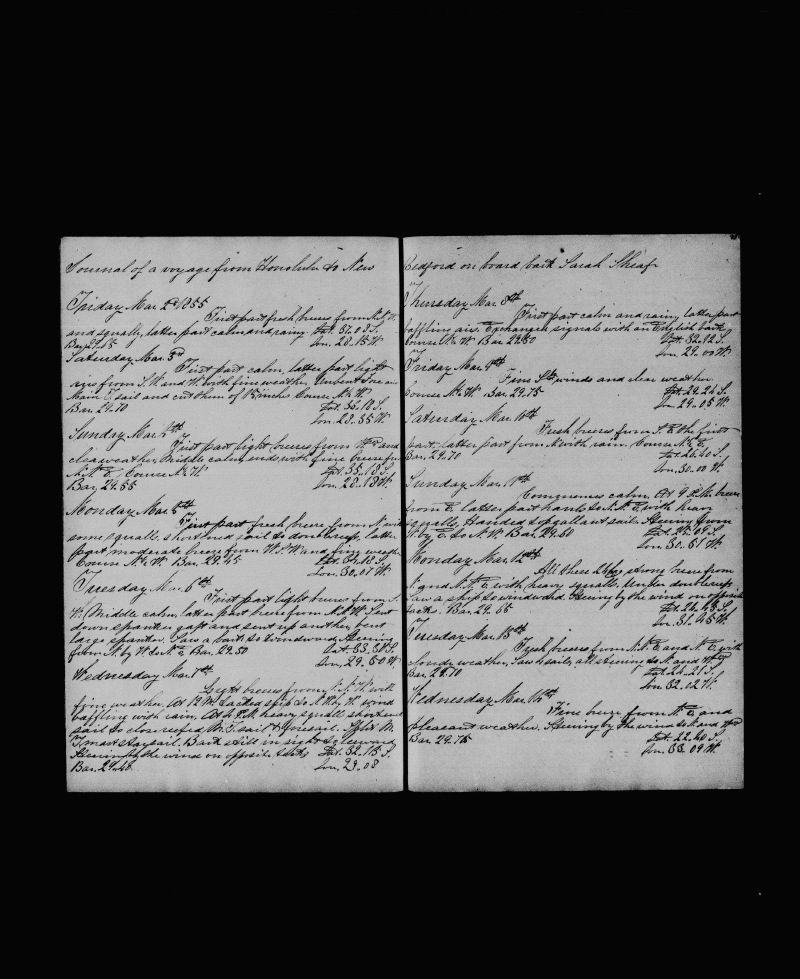 Journal of a voyage from Honolulu to New
Friday Mar. 2nd 1855
First part fresh breeze from N.N.W.
and squally, latter part calm and rainy. Lat. 37.03 S.
Bar. 29.65 Lon. 28.15 W.
Saturday Mar. 3rd
First part calm, latter part light
airs from S.W. and W. with fine weather. Unbent Fore and
Main T. sail and bent them of Course N. W.
Bar. 29.70 Lat. 36.10 S.
Lon. 28.35 W.
Sunday Mar. 4th
First part light breezes from Wd and
clear weather, Middle calm, ends with fine breeze from
N.N.E. Course N. W. Lat. 35.18 S.
Bar. 29.55 Lon. 28.18 W.
Monday Mar. 5th
First part fresh breeze from N. with
some squalls, shortened sail to double reefs, latter
part, moderate breeze from W.S.W. and fine weather
Course N. W. Bar. 29.45 Lat. 34.18 S.
Lon. 30.07 W.
Tuesday Mar. 6th
First part light breeze from S.
W. Middle calm, latter part breeze from N.N.W. Sent
down spanker gaff and sent up another, bent
large spanker. Saw a bark to windward steering
from N. by W. to N.E. Bar. 29.50 Lat. 33.
Lon. 29.50 W.
Wednesday Mar. 7th
Light breeze from N.N.W. with
fine weather. At 12 M. tacked ship to N.W. by W. wind
baffling with rain. At 4 P.M. heavy squall shortened
sail to close reefed M.T. sail & foresail. Split M.
T. mast staysail. Bark still in sight to leeward
Steering by the wind on opposite tacks Lat. 32.15 S.
Bar. 29.48 Lon. 29.08
Bedford on board bark Sarah Sheaf
Thursday Mar. 8th
First part calm and rainy, latter part
baffling airs. Exchanged signals with an English bark
Course N. W. Bar. 29.80 Lat. 32.12 S.
Lon. 29.00 W.
Friday Mar. 9th
Fine S. winds and clear weather
Course N. W. Bar. 29.75 Lat. 29.24 S.
Lon. 29.05 W.
Saturday Mar. 10th
Fresh breeze from S.E. the first
part, latter part from N. with rain. Course N. E.
Bar. 29.70 Lat. 26.40 S.
Lon. 30.00 W.
Sunday Mar. 11th
Commences calm. At 9 P.M. breeze
from E. latter part hauls to N.N.E. with heavy
squalls. Handed topgallant sails. Steering from
N. by E. to N.W. Bar. 29.60 Lat. 25.09 S.
Lon. 30.51 W.
Monday Mar. 12th
All these 24 hrs strong breeze from
N. and N.N.E. with heavy squalls. Under double reefs
Saw a ship to windward. Steering by the wind on opposite
tacks. Bar. 29.65 Lat. 24.43 S.
Lon. 31.45 W.
Tuesday Mar. 13th
Fresh breeze from N.N.E. and N.E. with
cloudy weather. Saw 4 sails, all steering to N. and Wd
Bar. 29.70 Lat. 24.21 S.
Lon. 32.12 W.
Wednesday Mar. 14th
Fine breeze from N.E. and
pleasant weather. Steering by the wind to N. and Wd
Bar. 29.75 Lat. 22.40 S.
Lon. 33.09 W.